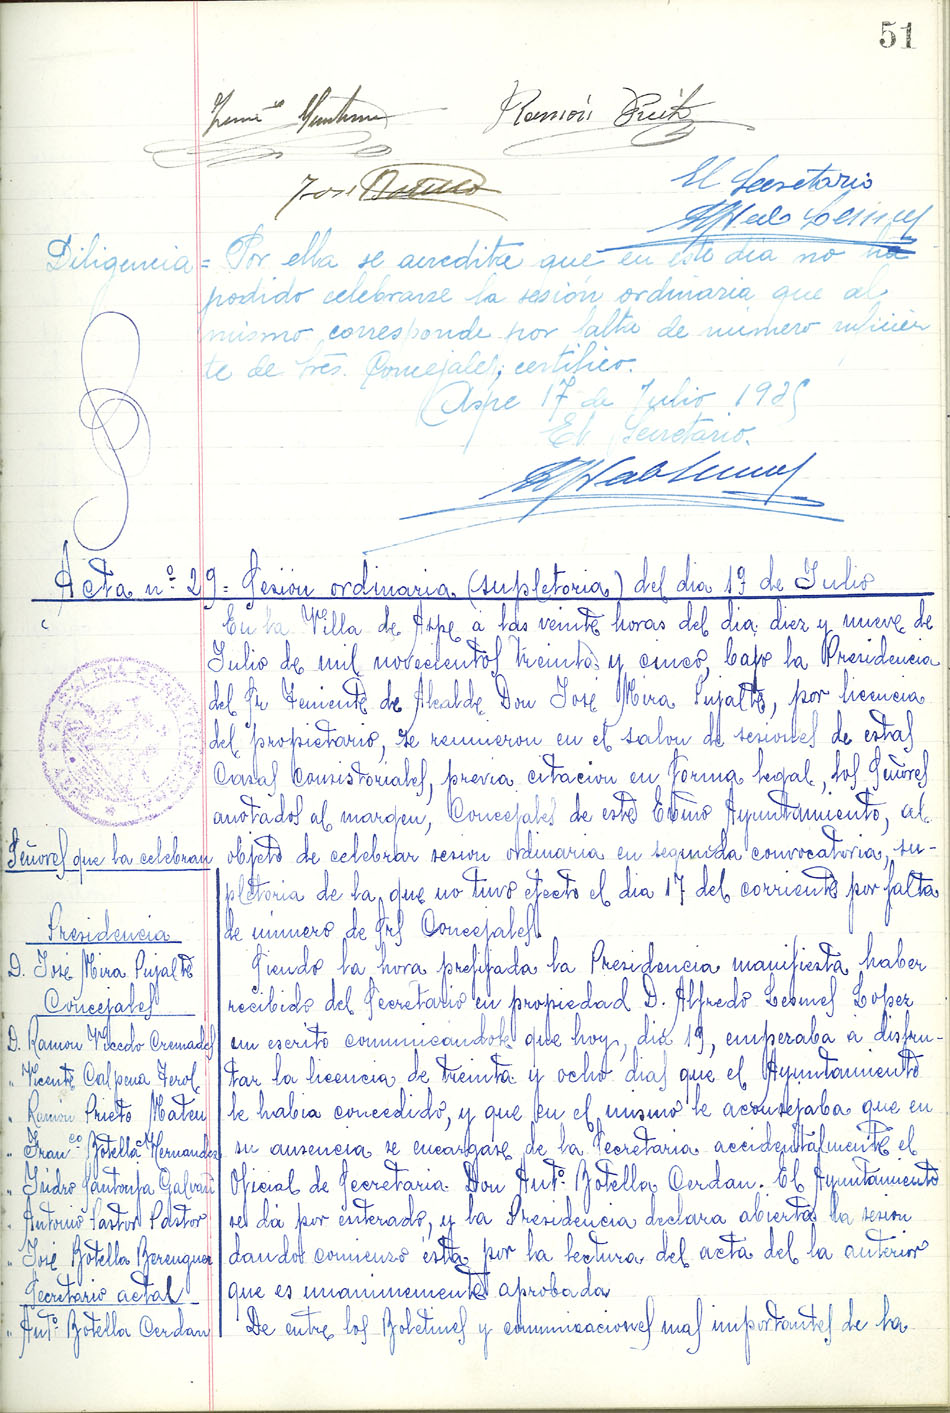 51
Ramón Prieto
José Botella
El Secretario
Diligencia = Por ella se acredita que en este dia no ha
podido celebrarse la sesión ordinaria que al
mismo corresponde por falta de número suficien
te de Sres. Concejales, certifico.
Aspe 17 de Julio 1935
El Secretario.
Acta nº 29 = Sesion ordinaria (supletoria) del dia 19 de Julio
En la Villa de Aspe a las veinte horas del dia diez y nueve de
Julio de mil novecientos treinta y cinco, bajo la Presidencia
del Sr Teniente de Alcalde Don José Mira Pujalte, por licencia
del propietario, se reunieron en el salon de sesiones de estas
Casas Consistoriales, previa citacion en forma legal, los Señores
anotados al margen, Concejales de este Excmo Ayuntamiento, al
Señores que la celebran
objeto de celebrar sesion ordinaria en segunda convocatoria, su-
pletoria de la que no tuvo efecto el dia 17 del corriente por falta
de número de Srs Concejales.
Presidencia
D. José Mira Pujalte
Concejales
D. Ramon Viccdo Cremades
" Vicente Calpena Terol
" Ramon Prieto Mateu
" Franco Botella Hernandez
" Isidro Santonja Galvañ
" Antonio Pastor Pastor
" José Botella Berenguer
Secretario actal
" Antº Botella Cerdan
Siendo la hora prefijada la Presidencia manifiesta haber
recibido del Secretario en propiedad D. Alfredo Lesmes Lopez
un escrito comunicandole que hoy, dia 19, empezaba a disfru-
tar la licencia de treinta y ocho dias que el Ayuntamiento
le habia concedido, y que en el mismo le aconsejaba que en
su ausencia se encargase de la Secretaria accidentalmente el
Oficial de Secretaria Don Antº Botella Cerdan. El Ayuntamiento
se dá por enterado, y la Presidencia declara abierta la sesion
dandos comienzo esta por la lectura del acta del la anterior
que es unanimemente aprobada
De entre los Boletines y comunicaciones mas importantes de la